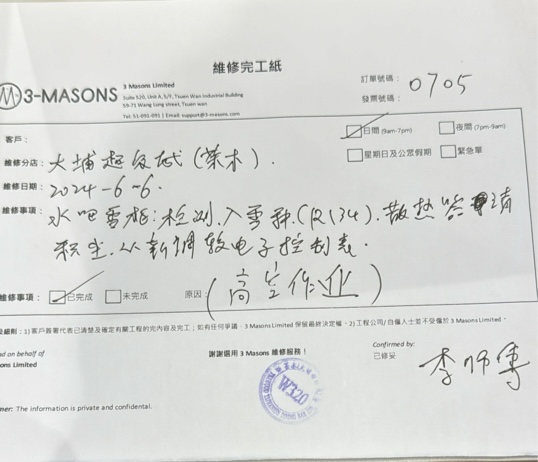 維修完工紙
3-MASONS
3 Masons Limited
Suite 520, Unit A, 5/F, Tsuen Wan Industrial Building
59-71 Wang Lung street, Tsuen wan
Tel: 51-091-091 | Email: support@3-masons.com
訂單號碼： 0705
發票號碼：
日間 (9am-7pm) 夜間 (7pm-9am)
星期日及公眾假期 緊急單
客戶：
維修分店： 大埔超級城(策木).
維修日期： 2024-6-6.
維修事項： 水吧雪柜:检测.入雪种.(R134).散热 清
积尘.从新调较电子控制表.
維修事項： 已完成 未完成 原因： (高空作业)
細則：1) 客戶簽署代表已清楚及確定有關工程的完內容及完工；如有任何爭議，3 Masons Limited 保留最終決定權。2) 工程公司/自僱人士並不受僱於 3 Masons Limited。
d on behalf of
ons Limited
謝謝選用 3 Masons 維修服務！
Confirmed by:
已修妥
李师傅
W320
mer: The information is private and confidential.